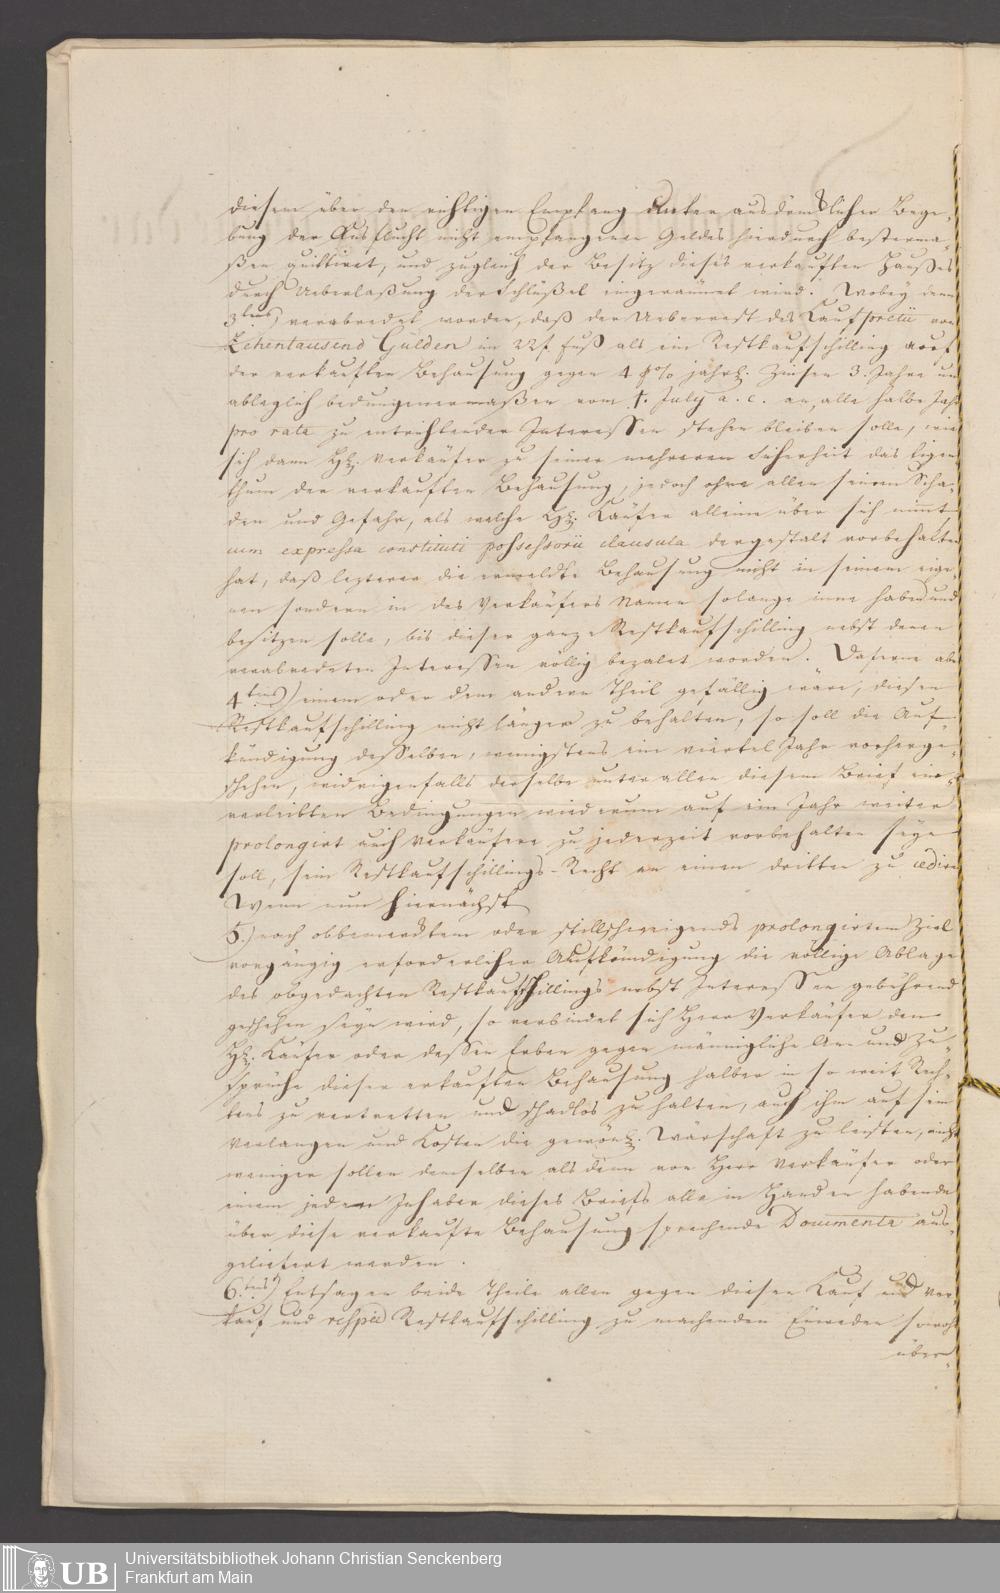 diesem über den richtigen Empfang unter ausdrücklicher Bege-
bung der Ausflucht nicht empfangenen Geldes hierdurch besterma-
ßen quittiret, und zugleich der Besitz dieses verkauften Haußes
durch Ueberlaßung der Schlüßel eingeräumt wird. Wobey denn
3tens) verabredet worden, daß der Ueberrest des Kaufpretii von
Zehentausend Gulden im 22f Fuß als ein Restkaufschilling auf
der verkauften Behausung gegen 4 p% jährl. Zinsen 3. Jahre un
ableglich bedungenermaßen vom 1. July a. c. an, alle halbe Jahr
pro rata zu entrichtender Interessen stehen bleiben solle, wie
sich dann H. Verkäufer zu seiner mehreren Sicherheit das Eigen
thum der verkauften Behausung, jedoch ohne allen seinen Scha-
den und Gefahr, als welche H. Käufer alleine über sich nimt
cum expressa constituti possessorii clausula dergestalt vorbehalten
hat, daß lezterer die ermeldte Behausung nicht in seinem eige-
nen sondern in des Verkäufers Namen solange inne haben und
besitzen solle, bis dieser ganze Restkaufschilling nebst denen
verabredeten Interessen völlig bezalet worden. Daferne aber
4tens) einem oder dem andern Theil gefällig wäre, diesen
Restkaufschilling nicht länger zu behalten, so soll die Auf-
kündigung desselben, wenigstens ein viertel Jahr vorherge-
schehen, widrigenfalls derselbe unter allen diesem Brief ein-
verleibten Bedingungen wiederum auf ein Jahr weiter
prolongirt auch Verkäufern zu jederzeit vorbehalten seyn
soll, sein Restkaufschillings-Recht an einen dritten zu cediren
Wenn nun hiernächst
5.) nach obbemerktem oder stillschweigends prolongirtem Ziel
vorgängig erforderlicher Aufkündigung die völlige Ablage
des obgedachten Restkaufschillings nebst Interessen gebührend
geschehen seyn wird, so verbindet sich Herr Verkäufer den
H. Käufer oder dessen Erben gegen männigliche An- und Zu-
sprüche dieser erkauften Behausung halber in so weit Rech-
tens zu vertretten und schadlos zu halten, auch ihm auf sein
Verlangen und Kosten die gewönl. Wärschaft zu leisten, nicht
weniger sollen demselben alsdenn von Herr Verkäufer oder
einem jeden Inhaber dieses Briefs alle in Handen habende
über diese verkaufte Behausung sprechende Documenta aus-
geliefert werden.
6tens) Entsagen beide Theile allen gegen diesen Kauf und Ver-
kauf und respee Restkaufschilling zu machenden Einreden sowohl
über-
UB
Universitätsbibliothek Johann Christian Senckenberg
Frankfurt am Main